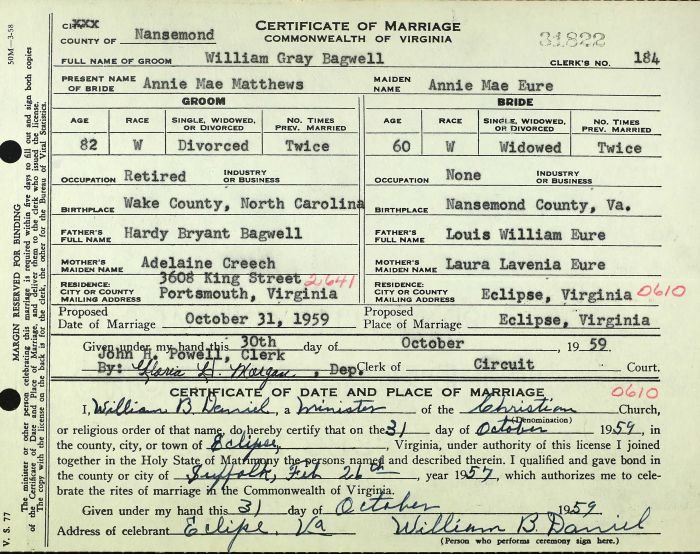 CIXXX
COUNTY OF Nansemond
CERTIFICATE OF MARRIAGE
COMMONWEALTH OF VIRGINIA
31822
FULL NAME OF GROOM William Gray Bagwell CLERK'S NO. 184
PRESENT NAME OF BRIDE Annie Mae Matthews MAIDEN NAME Annie Mae Eure
GROOM BRIDE
AGE RACE SINGLE, WIDOWED, OR DIVORCED NO. TIMES PREV. MARRIED AGE RACE SINGLE, WIDOWED, OR DIVORCED NO. TIMES PREV. MARRIED
82 W Divorced Twice 60 W Widowed Twice
OCCUPATION Retired INDUSTRY OR BUSINESS OCCUPATION None INDUSTRY OR BUSINESS
BIRTHPLACE Wake County, North Carolina BIRTHPLACE Nansemond County, Va.
FATHER'S FULL NAME Hardy Bryant Bagwell FATHER'S FULL NAME Louis William Eure
MOTHER'S MAIDEN NAME Adelaine Creech MOTHER'S MAIDEN NAME Laura Lavenia Eure
RESIDENCE: CITY OR COUNTY MAILING ADDRESS 3608 King Street 2641 Portsmouth, Virginia RESIDENCE: CITY OR COUNTY MAILING ADDRESS Eclipse, Virginia 0610
Proposed Date of Marriage October 31, 1959 Proposed Place of Marriage Eclipse, Virginia
Given under my hand this 30th day of October 1959
John H. Powell, Clerk
By: Gloria H. Morgan, Dep. Clerk of Circuit Court.
CERTIFICATE OF DATE AND PLACE OF MARRIAGE 0610
I, William B. Daniel, a minister of the Christian Church,
(Denomination)
or religious order of that name, do hereby certify that on the 31 day of October 1959, in
the county, city, or town of Eclipse, Virginia, under authority of this license I joined
together in the Holy State of Matrimony the persons named and described therein. I qualified and gave bond in
the county or city of Suffolk, Feb 26th, year 1957, which authorizes me to cele-
brate the rites of marriage in the Commonwealth of Virginia.
Given under my hand this 31 day of October 1959
Address of celebrant Eclipse, Va William B. Daniel
(Person who performs ceremony sign here.)
50M—3-58
MARGIN RESERVED FOR BINDING
The minister or other person celebrating this marriage is required within five days to fill out and sign both copies
of the Certificate of Date and Place of Marriage, and deliver them to the clerk who issued the license.
The copy with the license on the back is for the clerk, the other for the Bureau of Vital Statistics.
V. S. 77